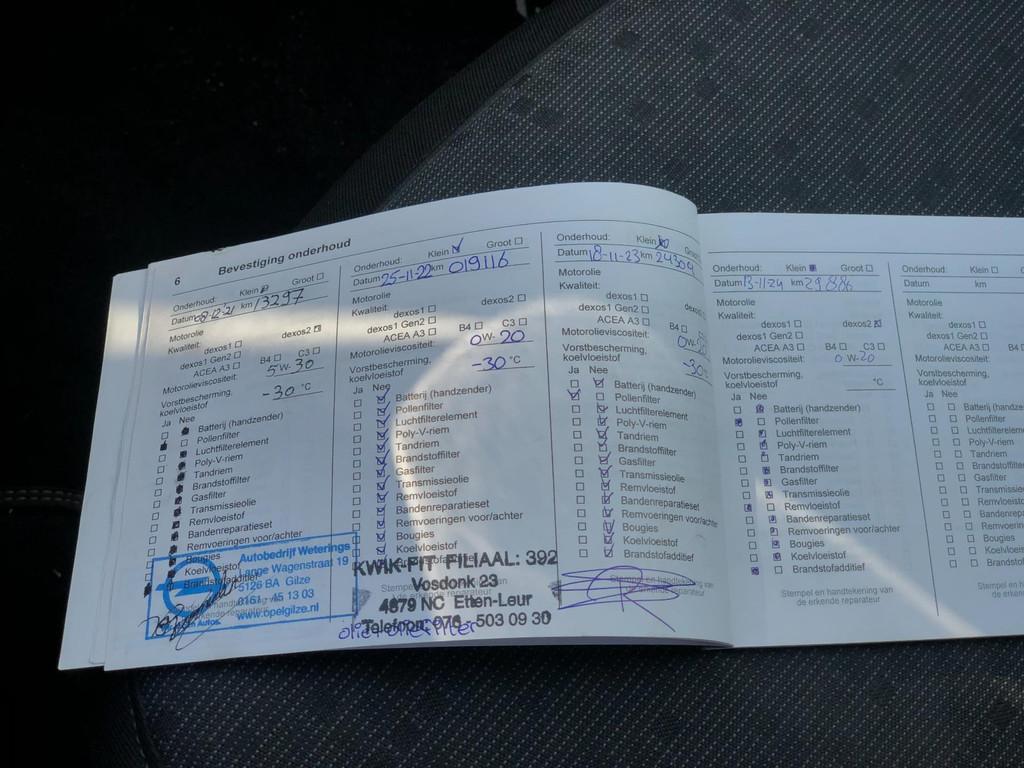 6 Bevestiging onderhoud
Onderhoud: Klein Groot
Datum 08-12-21 km 13297
Motorolie
Kwaliteit: dexos2
dexos1
dexos1 Gen2
ACEA A3 B4 C3
Motorolieviscositeit: 5 W- 30
Vorstbescherming,
koelvloeistof -30 °C
Ja Nee
Batterij (handzender)
Pollenfilter
Luchtfilterelement
Poly-V-riem
Tandriem
Brandstoffilter
Gasfilter
Transmissieolie
Remvloeistof
Bandenreparatieset
Remvoeringen voor/achter
Bougies
Koelvloeistof
Brandstofadditief
Autobedrijf Weterings
Lange Wagenstraat 19
5126 BA Gilze
0161 - 45 13 03
www.opelgilze.nl
Onderhoud: Klein Groot
Datum 25-11-22 km 019116
Motorolie
Kwaliteit: dexos2
dexos1
dexos1 Gen2
ACEA A3 B4 C3
Motorolieviscositeit: 0W- 20
Vorstbescherming,
koelvloeistof -30 °C
Ja Nee
Batterij (handzender)
Pollenfilter
Luchtfilterelement
Poly-V-riem
Tandriem
Brandstoffilter
Gasfilter
Transmissieolie
Remvloeistof
Bandenreparatieset
Remvoeringen voor/achter
Bougies
Koelvloeistof
KWIK-FIT FILIAAL: 392
Vosdonk 23
4879 NC Etten-Leur
Telefoon: 076 - 503 09 30
Onderhoud: Klein Groot
Datum 18-11-23 km 24304
Motorolie
Kwaliteit:
dexos1
dexos1 Gen2
ACEA A3 B4
Motorolieviscositeit: 0W-
Vorstbescherming,
koelvloeistof -30
Ja Nee
Batterij (handzender)
Pollenfilter
Luchtfilterelement
Poly-V-riem
Tandriem
Brandstoffilter
Gasfilter
Transmissieolie
Remvloeistof
Bandenreparatieset
Remvoeringen voor/achter
Bougies
Koelvloeistof
Brandstofadditief
Stempel en handtekening van
de erkende reparateur
Onderhoud: Klein Groot
Datum 13-11-24 km 29886
Motorolie
Kwaliteit:
dexos1 dexos2
dexos1 Gen2
ACEA A3 B4 C3
Motorolieviscositeit: 0 W-20
Vorstbescherming,
koelvloeistof °C
Ja Nee
Batterij (handzender)
Pollenfilter
Luchtfilterelement
Poly-V-riem
Tandriem
Brandstoffilter
Gasfilter
Transmissieolie
Remvloeistof
Bandenreparatieset
Remvoeringen voor/achter
Bougies
Koelvloeistof
Brandstofadditief
Stempel en handtekening van
de erkende reparateur
Onderhoud: Klein
Datum km
Motorolie
Kwaliteit:
dexos1
dexos1 Gen2
ACEA A3 B4
Motorolieviscositeit:
Vorstbescherming,
koelvloeistof
Ja Nee
Batterij
Pollenfilter
Poly-V-riem
Tandriem
Gasfilter
Remvloeistof
Bougies
Koelvloeistof
Stempel en